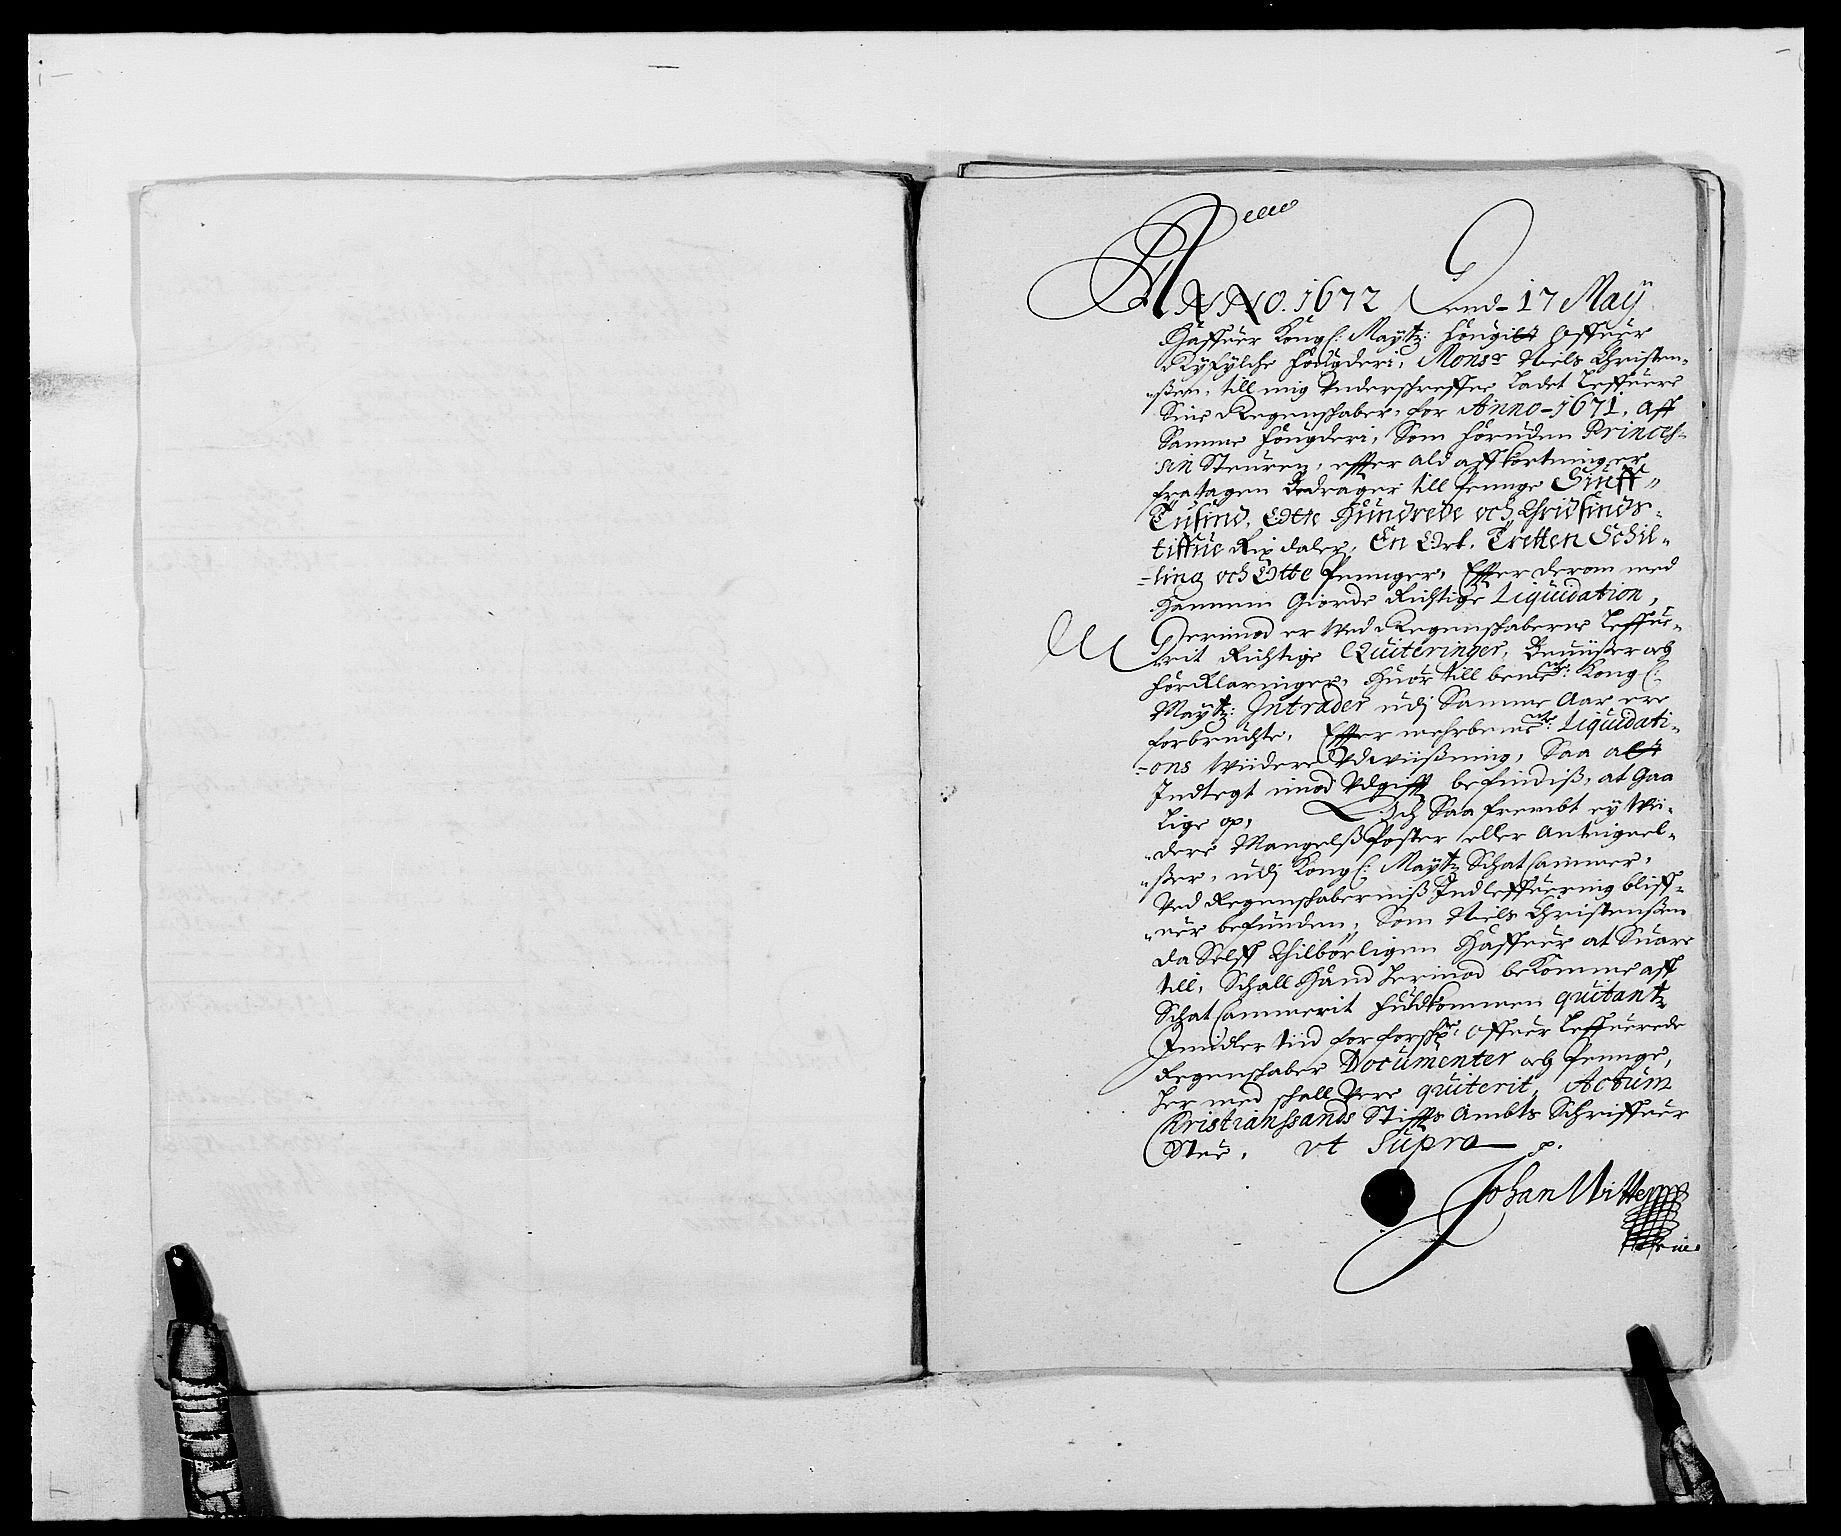 ANNO. 1672 Dend- 17 Maÿ
Haffuer Kongl: Maÿtz: fougit offuer
Ryfylche fougderi, Monsr Niels Christen-
-ßen, till mig Underschreffne Ladet Leffuere
Sine Regenschaber, for Anno-1671, aff
Samme fougderi, Som foruden Princes-
sin Steuren, effter ald aff kortninger
fratagen Bedrager till penge Siuff
Tusind, Otte Hundrede och Thridsinds-
tiffue Rix daler, En Ort, Tretten Schil-
-ling och Otte Penninger, Effter derom med
hannem Giorde Richtige Liquidation,
Derimod er Wed Regenschaberne Leffue-
rit Richtige Quiteringer, Beuiißer och
forKlaringer, Huor till bemte: Kongl:
Maÿtz: Intrader udj Samme Aar ere
forbruchte, Effter mehrbemte: Liquidati-
-ons Wiidere Udwiißning, Saa alt
Indtegt imod Udgifft befindiß, at Gaa
Lige op, Och Saa frembt eÿ Wii-
-dere MangelßPoster eller Antegnel-
-ßer, udj Kongl: Maÿtz SchatCammer,
Ved Regenschaberniß Indleffuering bliff-
-uer befunden, Som Niels Christenßen
da Selff Thilbørligen Haffuer at Suare
till, Schall Hand Herimod beKomme aff
SchatCammerit fuldkommen quitantz
Imidler tiid for forschr: Offuer Leffuerede
Regenschaber Documenter och Penge,
Her med schall Vere quiterit, Actum
Kristianssands Stiffts Ambts Schriffuer
Stue, vt Supra p.
Johan Witten